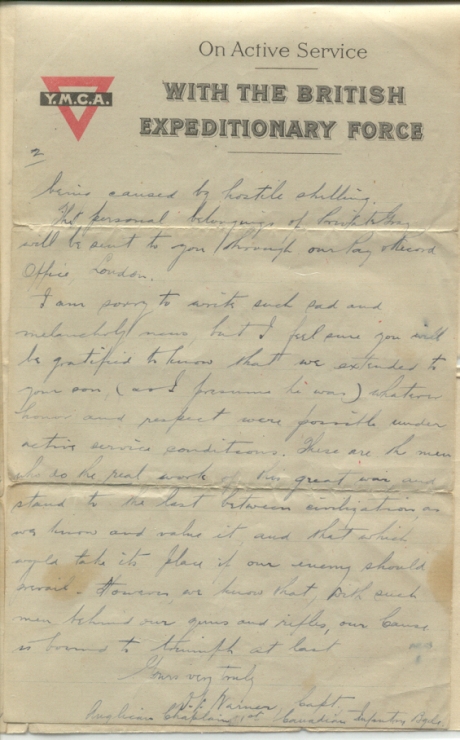 On Active Service
WITH THE BRITISH
Y.M.C.A.
EXPEDITIONARY FORCE
2
being caused by hostile shelling.
The personal belongings of Private Gray
will be sent to you through our Pay & Record
Office London.
I am sorry to write such sad and
melancholy news, but I feel sure you will
be gratified to know that we extended to
your son, (as I presume he was) whatever
honor and respect were possible under
active service conditions. These are the men
who do the real work of this great war and
stand to the last between civilization, as
we know and value it, and that which
would take its place if our enemy should
prevail. However, we know that, with such
men behind our guns and rifles, our cause
is bound to triumph at last
Yours very truly
Warner, Capt.
Anglican Chaplain 1st Canadian Infantry Bgde.